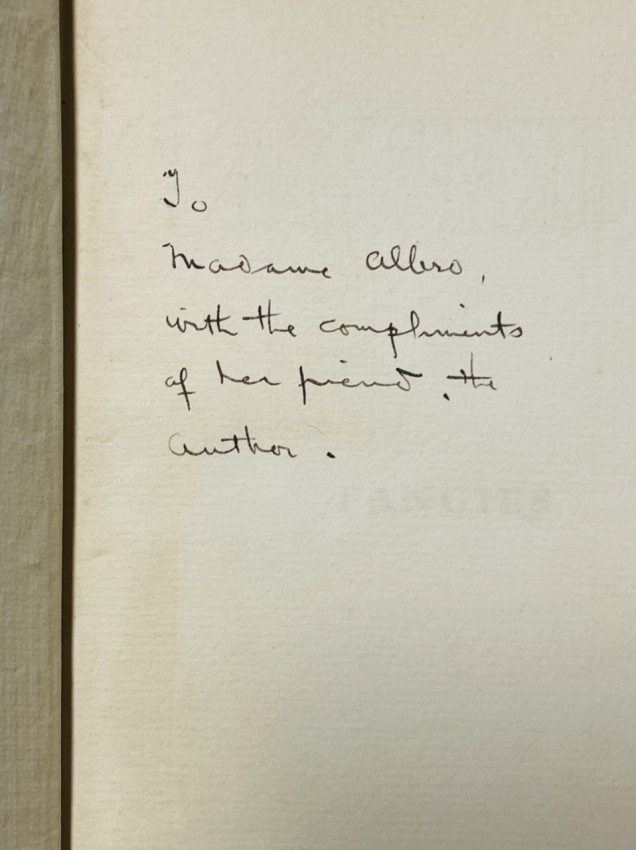 To
Madame Allero,
with the compliments
of her friend, the
Author.
FANCIES